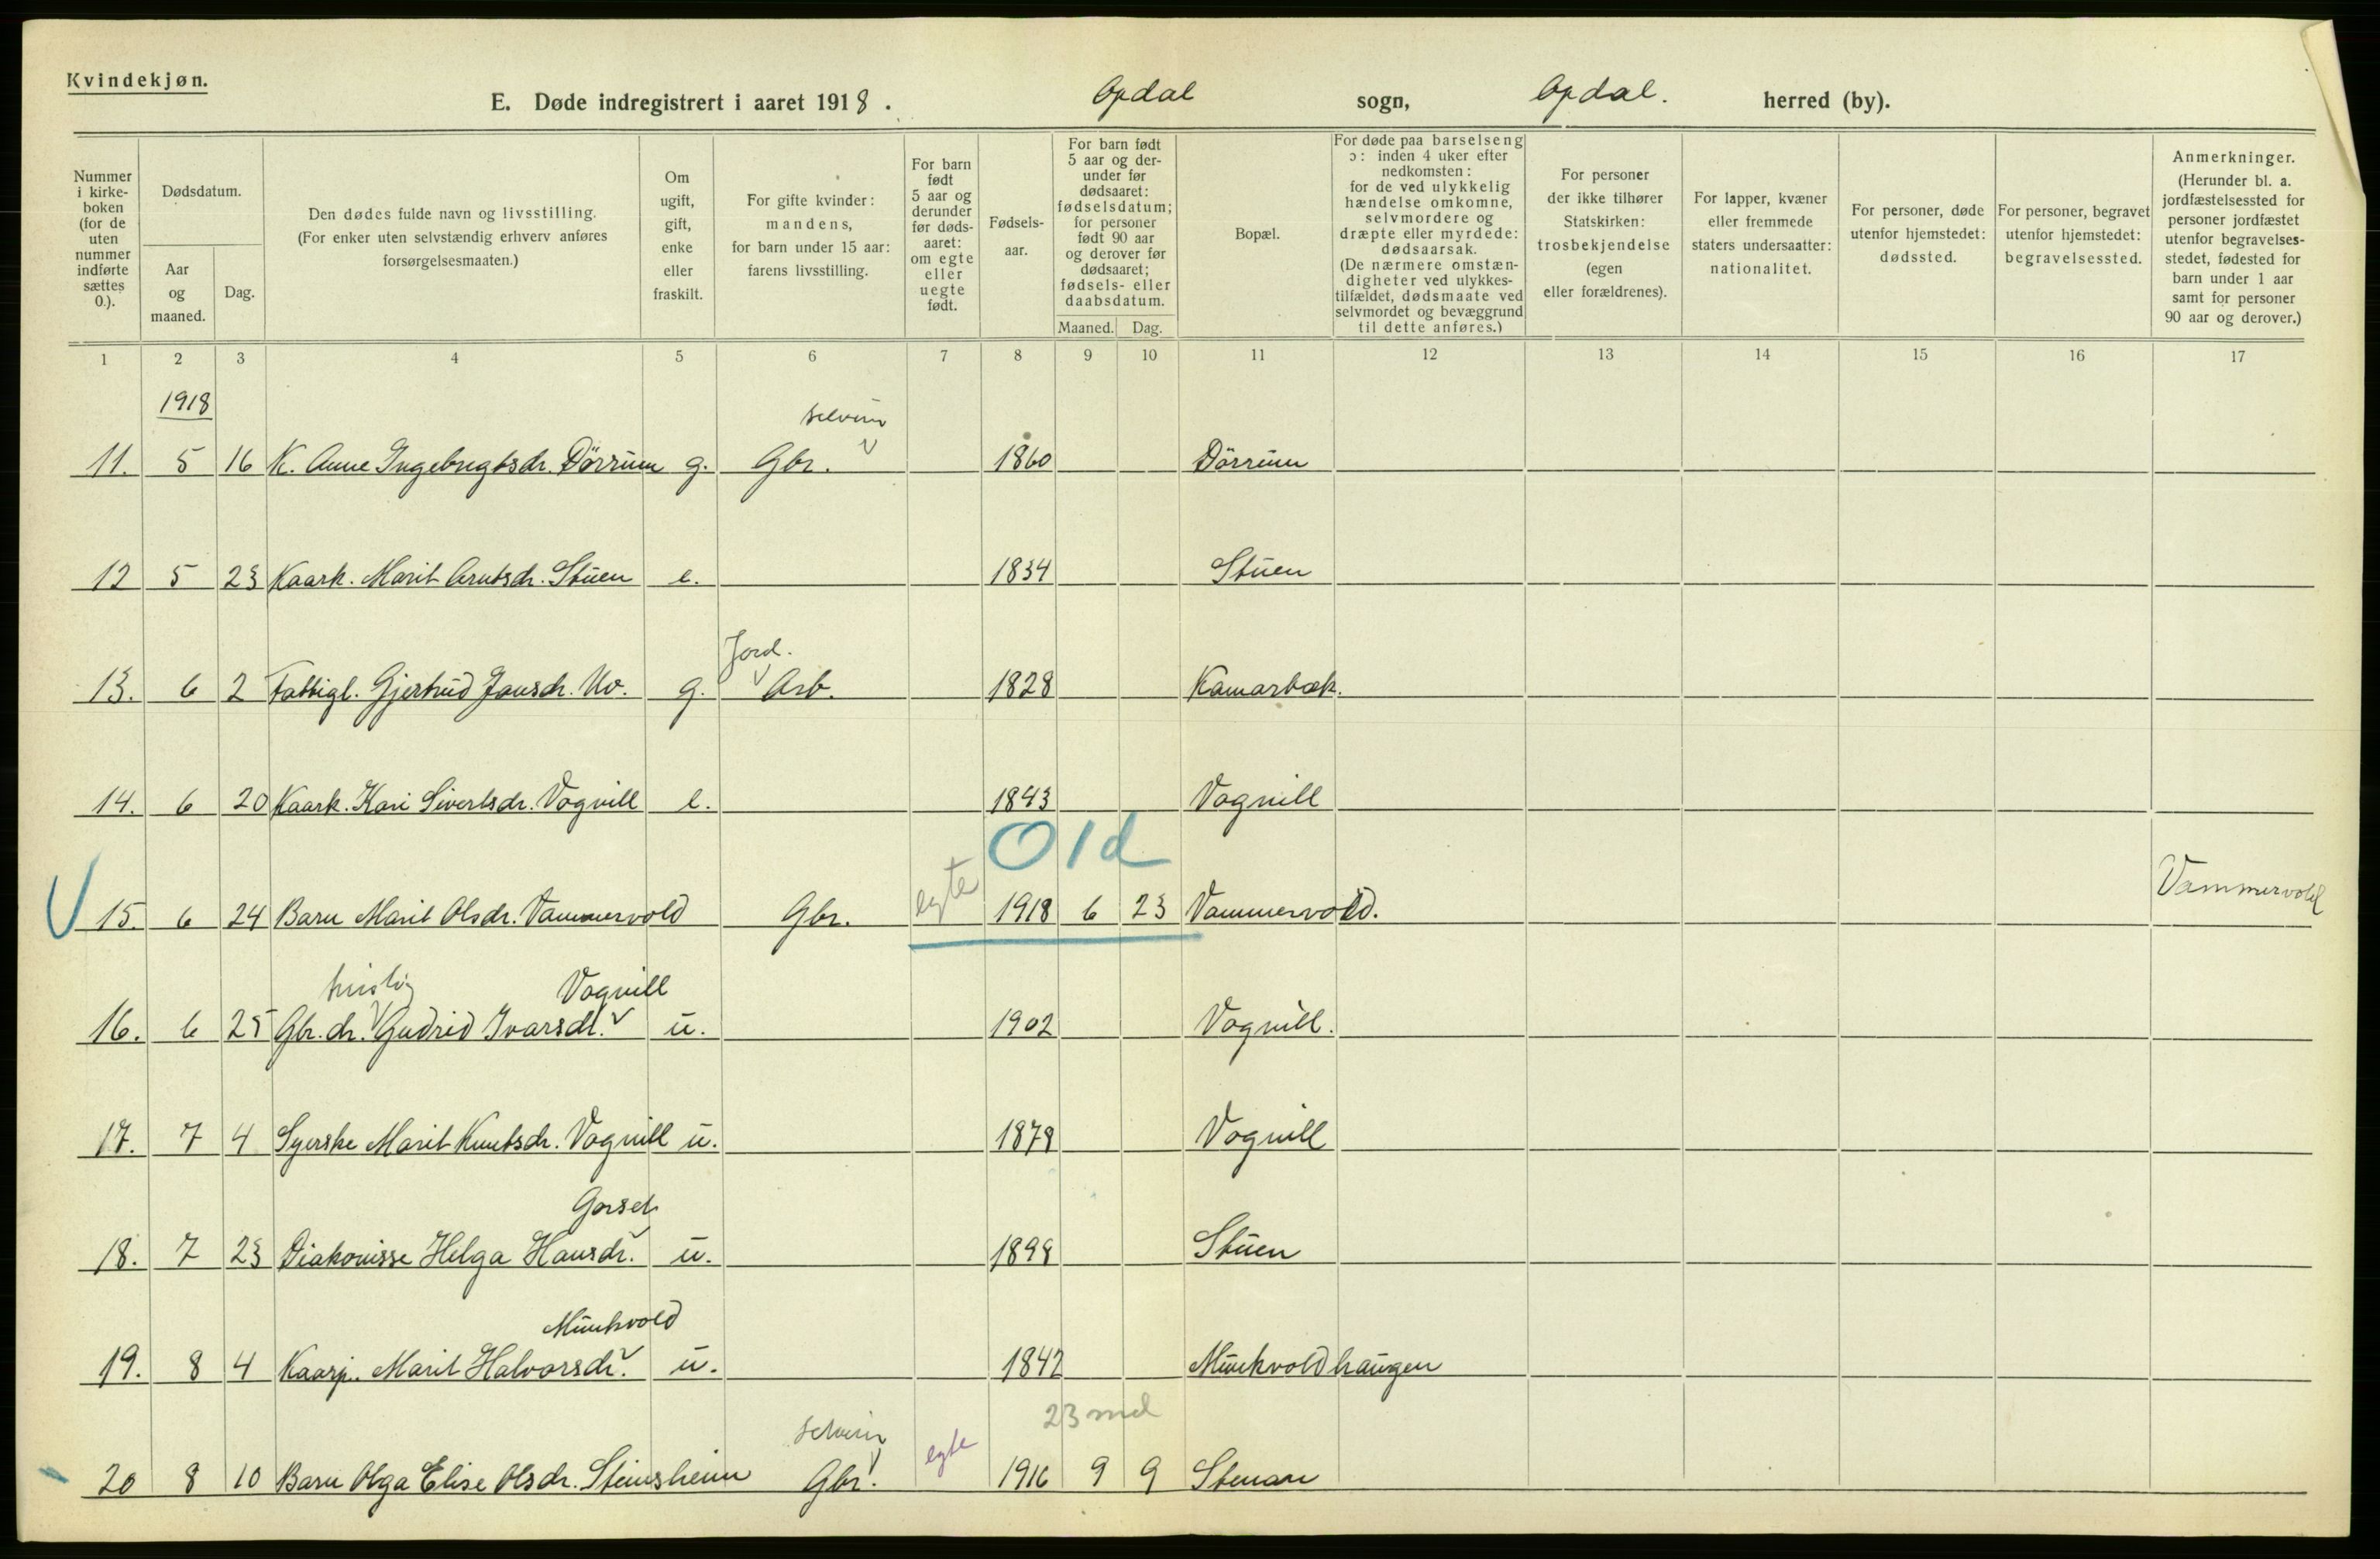 Kvindekjøn.
E. Døde indregistrert i aaret 1918. Opdal sogn, Opdal. herred (by).
Nummer i kirkeboken (for de uten nummer indførte sættes 0.).
Dødsdatum.
Aar og maaned.
Dag.
Den dødes fulde navn og livsstilling. (For enker uten selvstændig erhverv anføres forsørgelsesmaaten.)
Om ugift, gift, enke eller fraskilt.
For gifte kvinder: mandens, for barn under 15 aar: farens livsstilling.
For barn født 5 aar og derunder før dødsaaret: om egte eller uegte født.
Fødselsaar.
For barn født 5 aar og derunder før dødsaaret: fødselsdatum; for personer født 90 aar og derover før dødsaaret; fødsels- eller daabsdatum.
Maaned. Dag.
Bopæl.
For døde paa barselseng ɔ: inden 4 uker efter nedkomsten: for de ved ulykkelig hændelse omkomne, selvmordere og dræpte eller myrdede: dødsaarsak. (De nærmere omstændigheter ved ulykkestilfældet, dødsmaate ved selvmordet og bevæggrund til dette anføres.)
For personer der ikke tilhører Statskirken: trosbekjendelse (egen eller forældrenes).
For lapper, kvæner eller fremmede staters undersaatter: nationalitet.
For personer, døde utenfor hjemstedet: dødssted.
For personer, begravet utenfor hjemstedet: begravelsessted.
Anmerkninger. (Herunder bl. a. jordfæstelsessted for personer jordfæstet utenfor begravelsesstedet, fødested for barn under 1 aar samt for personer 90 aar og derover.)
1 2 3 4 5 6 7 8 9 10 11 12 13 14 15 16 17
1918
selveier
11. 5 16 K. Anne Ingebrigtsdr. Dörrum g. Gbr. 1860 Dörrum
12 5 23 Kaark. Marit Arntsdr. Stuen e. 1834 Stuen
Jord.
13. 6 2 Fattigl. Gjertrud Jonsdr. Uv. g. Arb. 1828 Kamarbæk.
14. 6 20 Kaark. Kari Sivertsdr. Vognill e. 1843 Vognill
01d
15. 6 24 Barn Marit Olsdr. Vammervold Gbr. egte 1918 6 23 Vammervold. Vammervold
huslig Vognill
16. 6 25 Gbr. dr. Gudrid Ivarsdr. u. 1902 Vognill.
17. 7 4 Syerske Marit Knutsdr. Vognill u. 1879 Vognill
18. 7 23 Diakonisse Helga Hansdr. u. 1898 Stuen
Munkvold
19. 8 4 Kaarp. Marit Halvorsdr. u. 1842 Munkvoldhaugen
selveier 23 md
20 8 10 Barn Olga Elise Olsdr. Steinsheim Gbr. egte 1916 9 9 Stenan